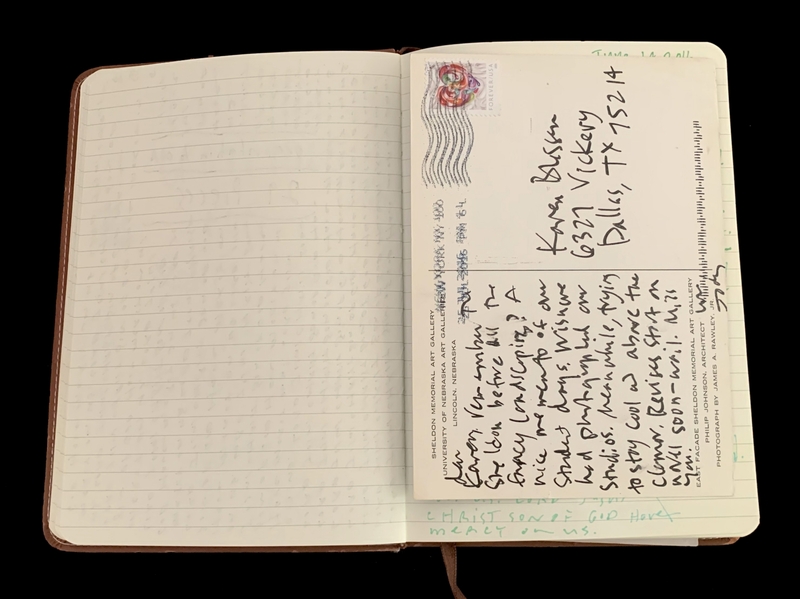 SHELDON MEMORIAL ART GALLERY
UNIVERSITY OF NEBRASKA ART GALLERIES
LINCOLN, NEBRASKA
Dear
Karen remember
Sheldon before all the
fancy landscaping? A
nice memento of our
student days. Wish we
had photographed our
studios. Meanwhile, trying
to stay cool and above the
clamor. Revises start on
soon - wail. Miss
you.
Jody
EAST FACADE SHELDON MEMORIAL ART GALLERY
PHILIP JOHNSON, ARCHITECT
PHOTOGRAPH BY JAMES A. RAWLEY, JR.
NEW YORK NY 100
FOREVER USA
Karen
6327 Vickery
Dallas, TX 75214
CHRIST SON OF GOD Have
mercy on us.